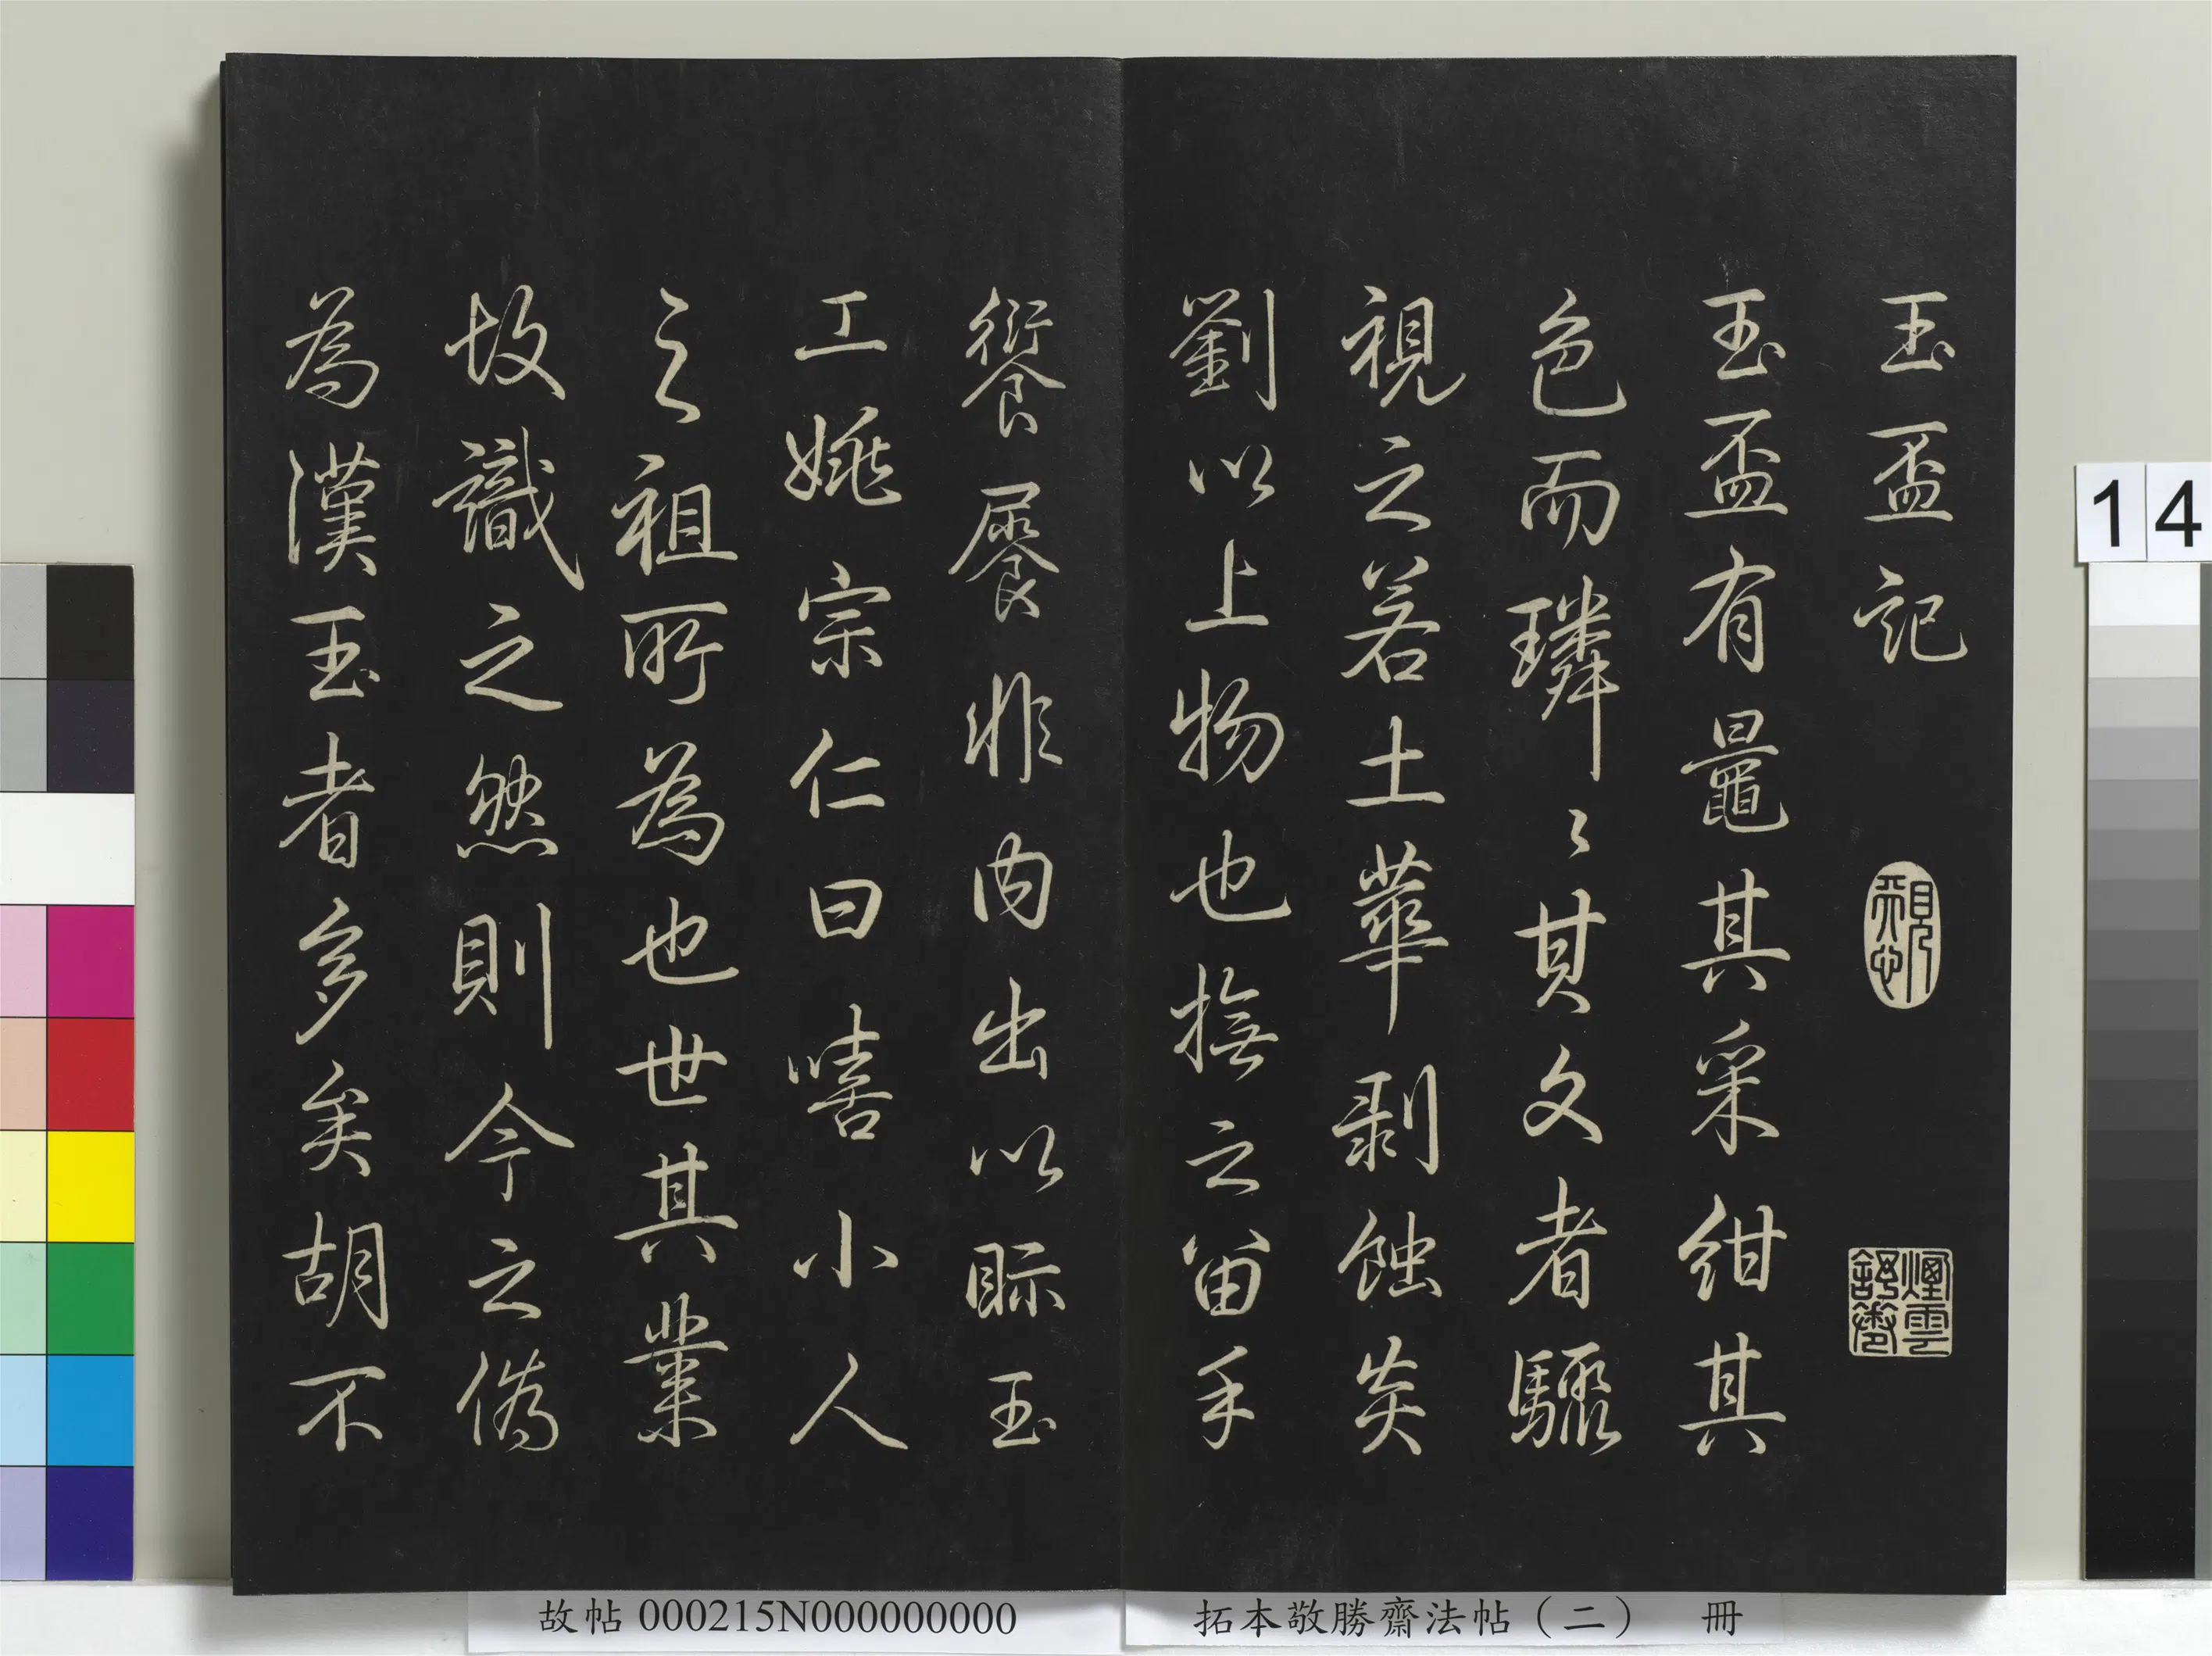 玉盃記
玉盃有㬅其采紺其
色而璘〻其文者驟
視之若土華剥蝕炎
劉以上物也撫之留手
餰餍非内出以眎玉
工姚宗仁曰嘻小人
之祖所為也世其業
故識之然則今之僞
為漢玉者多矣胡不
煙雲舒卷
14
故帖000215N000000000
拓本敬勝齋法帖（二） 冊